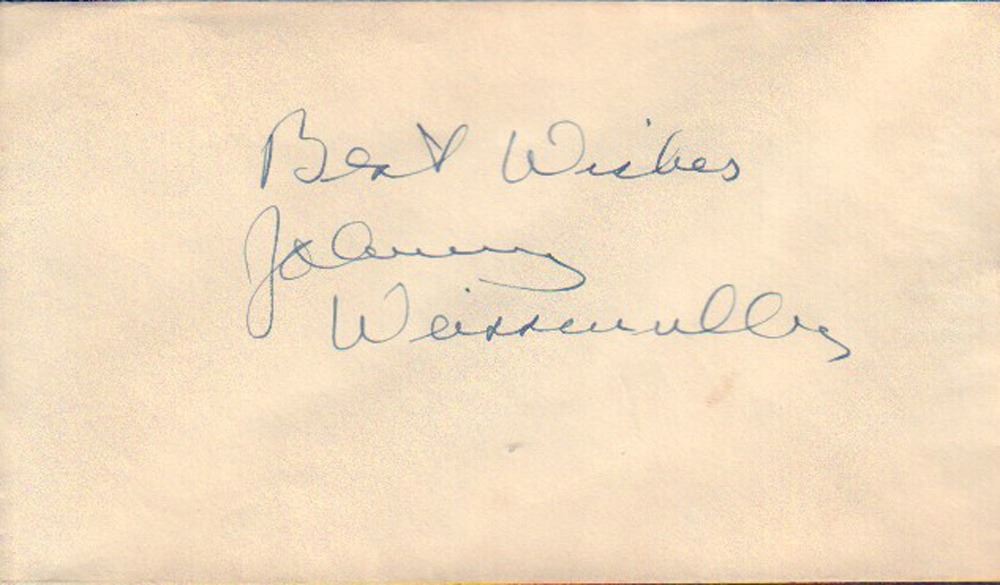 Best Wishes
Johnny
Weissmuller